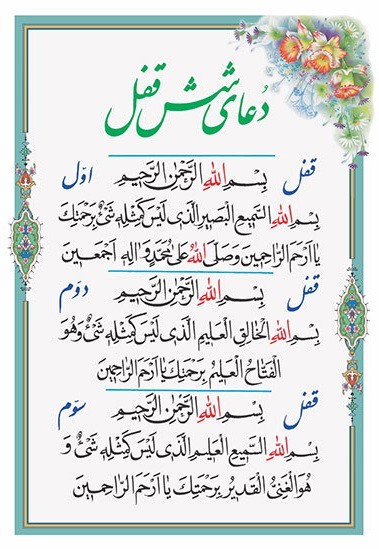 دُعای شش قفل
قفل بِسْمِ اللهِ الرَّحْمٰنِ الرَّحیمِ اوّل
بِسْمِ اللهِ السَّمیعِ الْبَصیرِ الَّذی لَیْسَ کَمِثْلِهِ شَیْءٌ بِرَحْمَتِكَ
یا اَرْحَمَ الرّاحِمینَ وَصَلَّی اللهُ عَلی مُحَمَّدٍ وَ الِهِ اَجْمَعینَ
قفل بِسْمِ اللهِ الرَّحْمٰنِ الرَّحیمِ دوّم
بِسْمِ اللهِ الْخالِقِ الْعَلیمِ الَّذی لَیْسَ کَمِثْلِهِ شَیْءٌ وَهُوَ
الْفَتّاحُ الْعَلیمُ بِرَحْمَتِكَ یا اَرْحَمَ الرّاحِمینَ
قفل بِسْمِ اللهِ الرَّحْمٰنِ الرَّحیمِ سوّم
بِسْمِ اللهِ السَّمیعِ الْعَلیمِ الَّذی لَیْسَ کَمِثْلِهِ شَیْءٌ وَ
هُوَ الْغَنِیُّ الْقَدیرُ بِرَحْمَتِكَ یا اَرْحَمَ الرّاحِمینَ